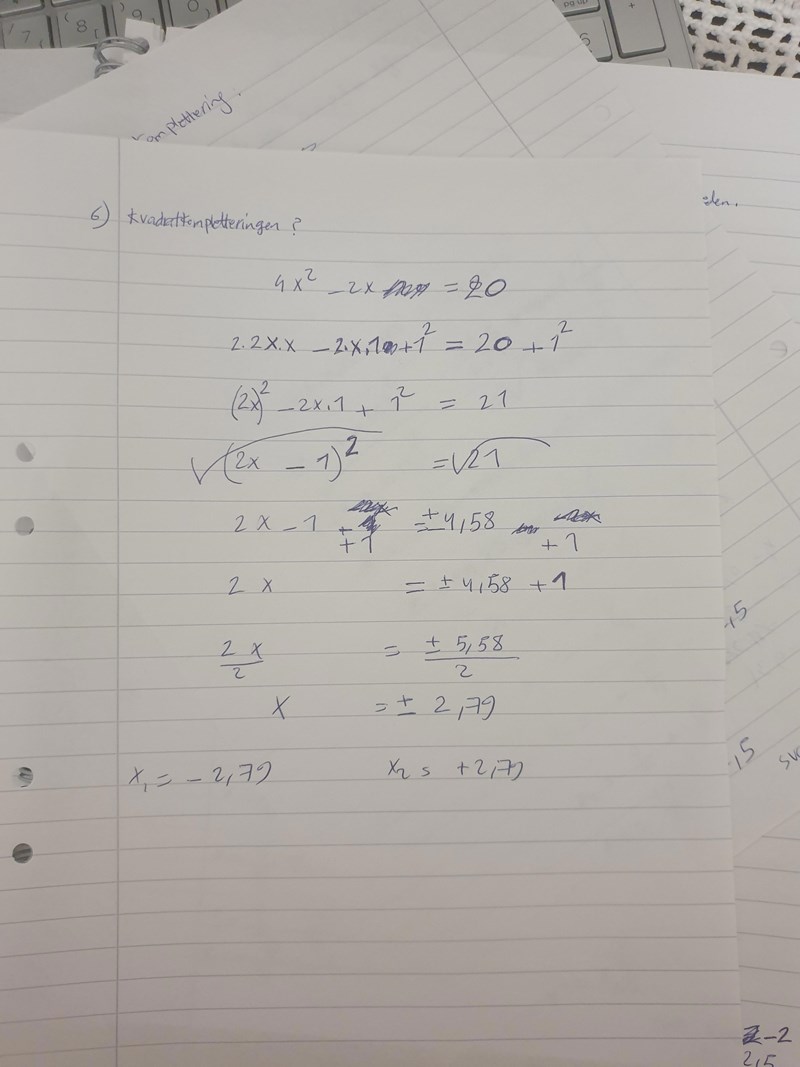 7 8 9 0
komplettering.
den.
6) kvadratkompletteringen?
4x² - 2x = 20
2.2x.x - 2.x.1 + 1² = 20 + 1²
(2x)² - 2x.1 + 1² = 21
√(2x - 1)² = √21
2x - 1 + 1 = ± 4,58 + 1
2x = ± 4,58 + 1
2x/2 = ± 5,58/2
x = ± 2,79
x₁ = - 2,79 x₂ = + 2,79
,5
,5
-2
2,5